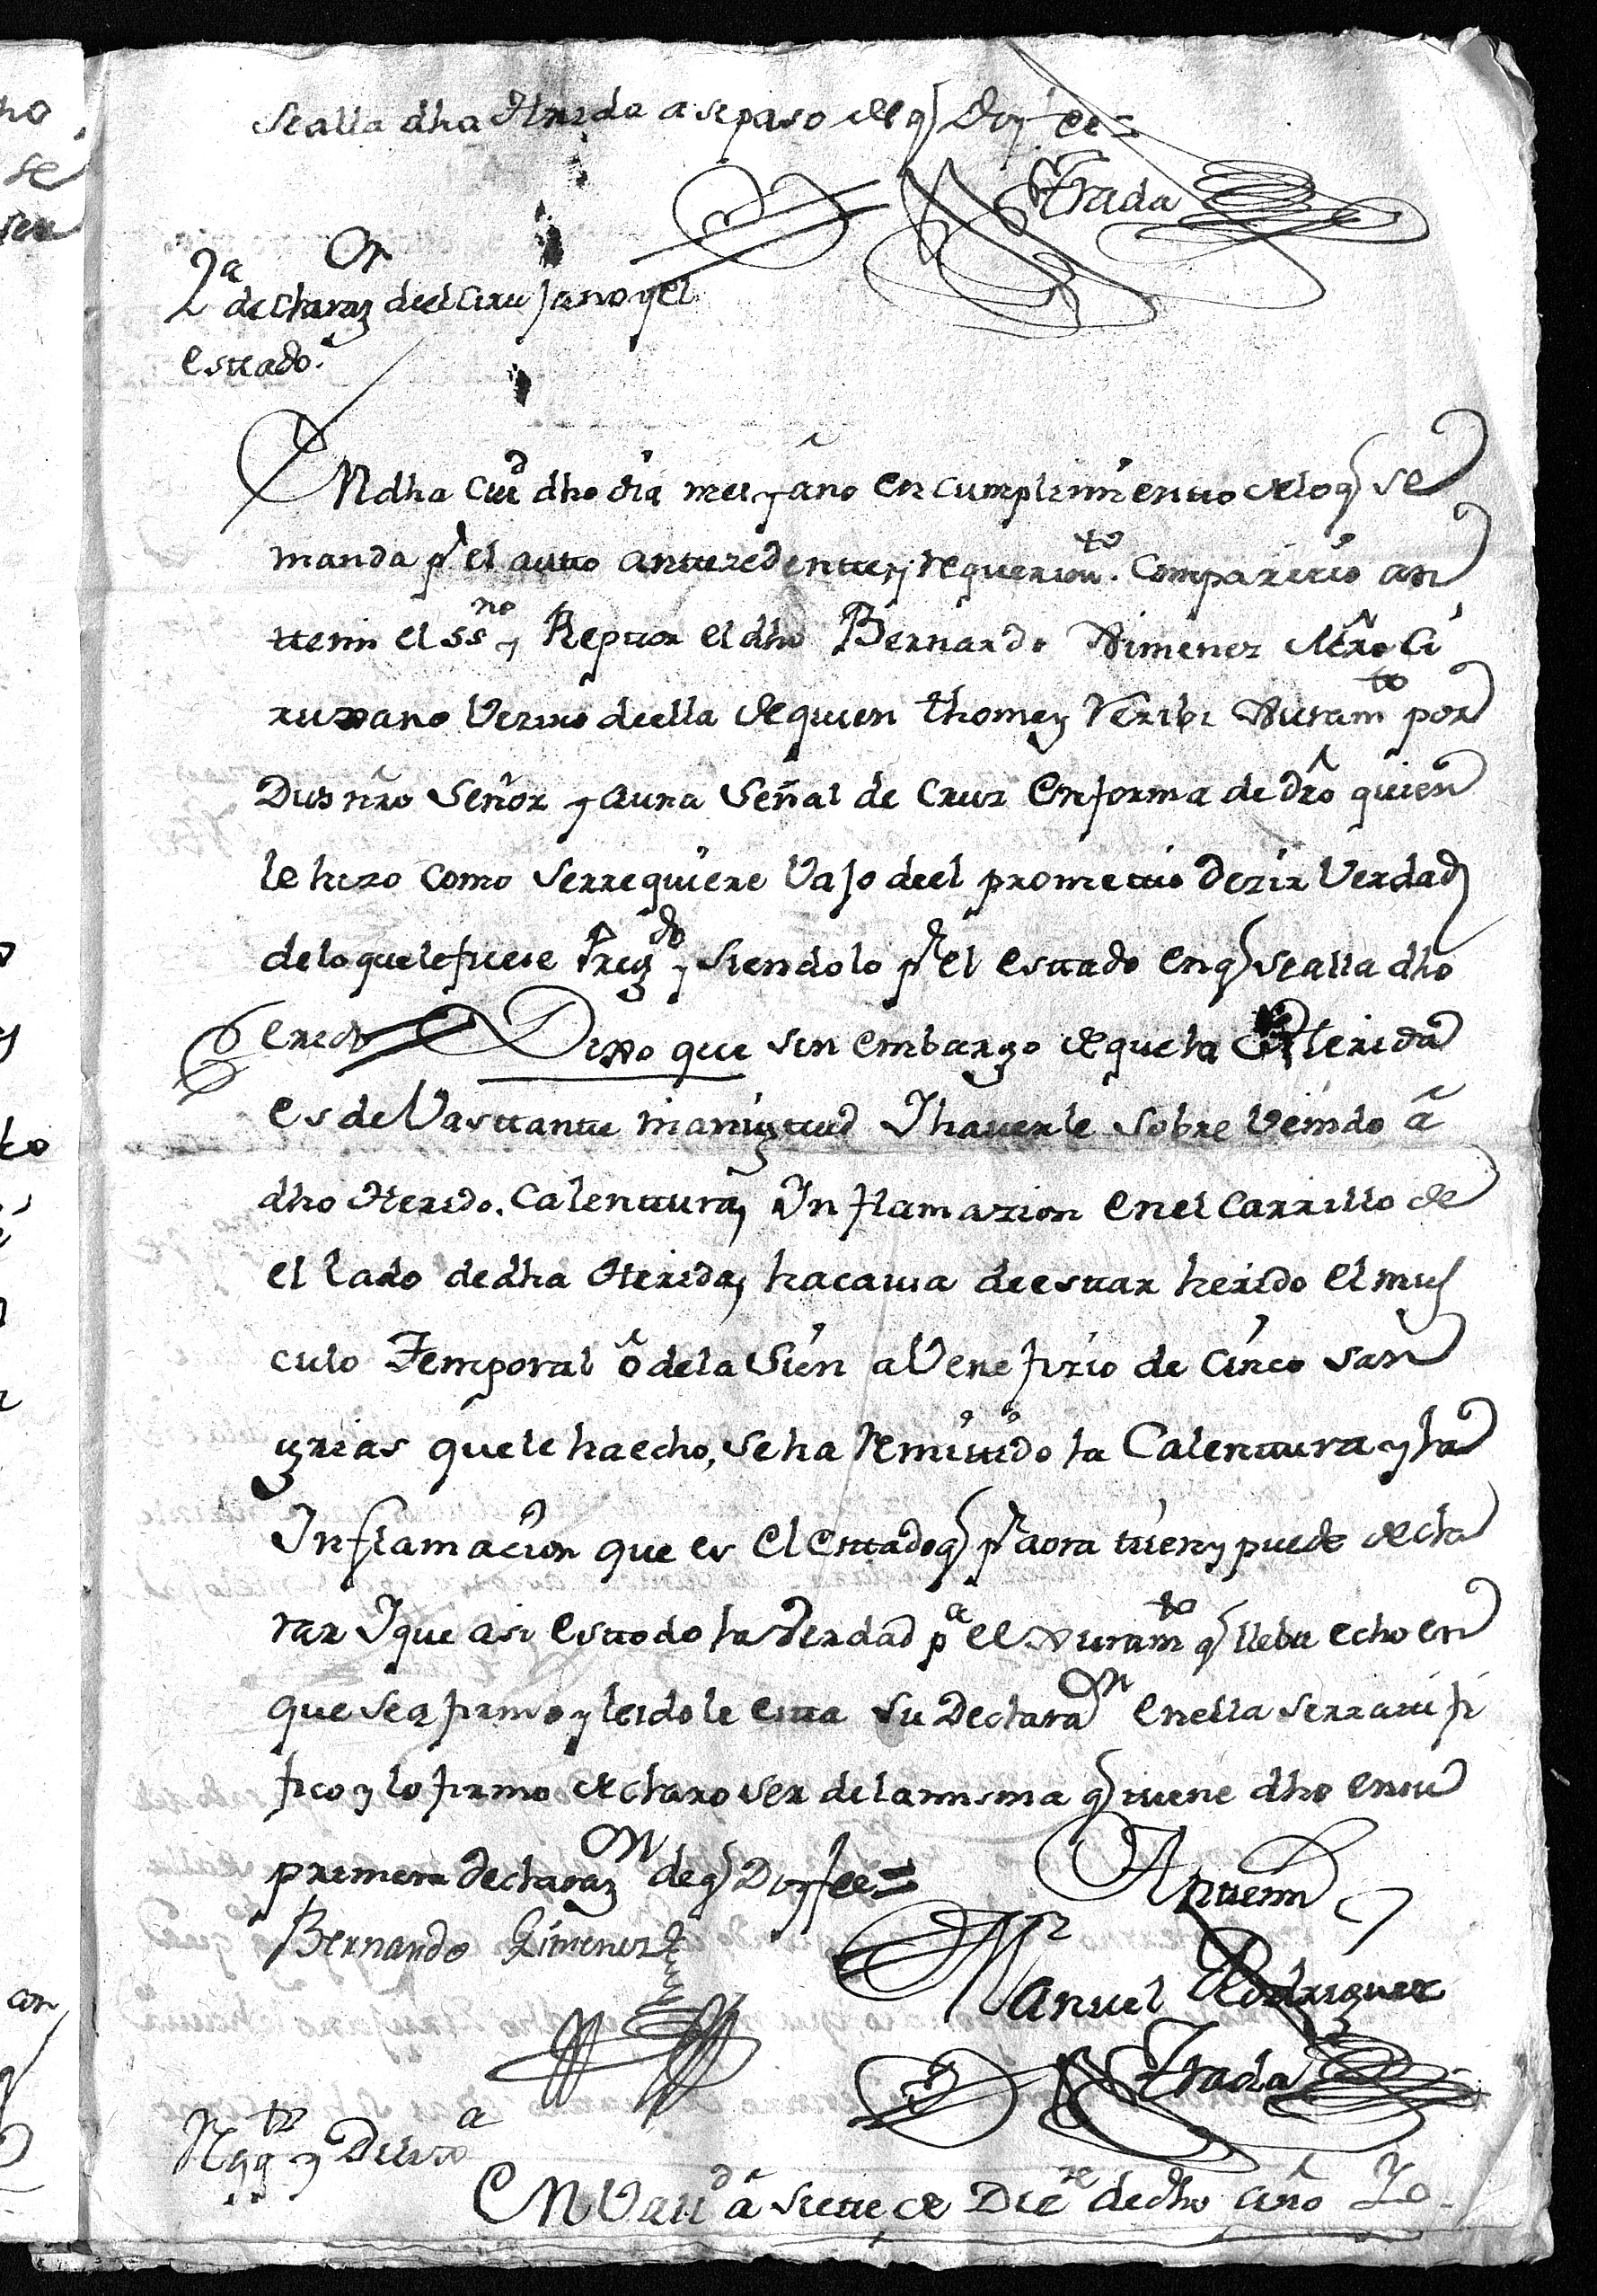 Sealla dha Herida a sepaso de q Doy fee =
Estrada
2ª declaraz on deel Cirujano y el
esttado.
EN dha Ciud dho dia mes y año en cumplimientto de loq se
manda pr el autto anttezedentte y requerimto. Comparezio an
ttemi el ssno y Reptior el dho Bernardo Ximenez Mro Ci
ruxano Vezino deella de quien thome y Rezibi Juramto por
Dios nro Señor y a una Señal de Cruz en forma de dro quien
le hizo como serrequiere Vajo deel promettio dezir Verdad
de lo que le fuese Pregdo y siendolo pr el esttado en q sealla dho
Erido Dixo que sin embargo de que la Herida
es de Vasttantte magnittud Y haverle sobre Venido â
dho Herido. Calenttura, Ynflamazion en el Carrillo de
el lado de dha Herida, ha causa de esttar herido el mus
culo Temporal ô de la Sien a Venefizio de Cinco san
grias que le ha echo, se ha Remittido la Calenttura y la
Inflamacion que es el Esttado q pr aora tiene y puede decla
rar Y que asi es ttodo la Verdad pa el Juramto q lleba echo en
que se afirmo y leidole estta su Declaraon en ella serrattifi
fico y lo firmo declaro ser de la misma q ttiene dho en su
primera declarazon de q Doy fee =
Anttemi
Bernardo Ximenez
Manuel Rodriguez
Estrada
y Dilixa
EN Valld â siette de Dizre de dho año Yo